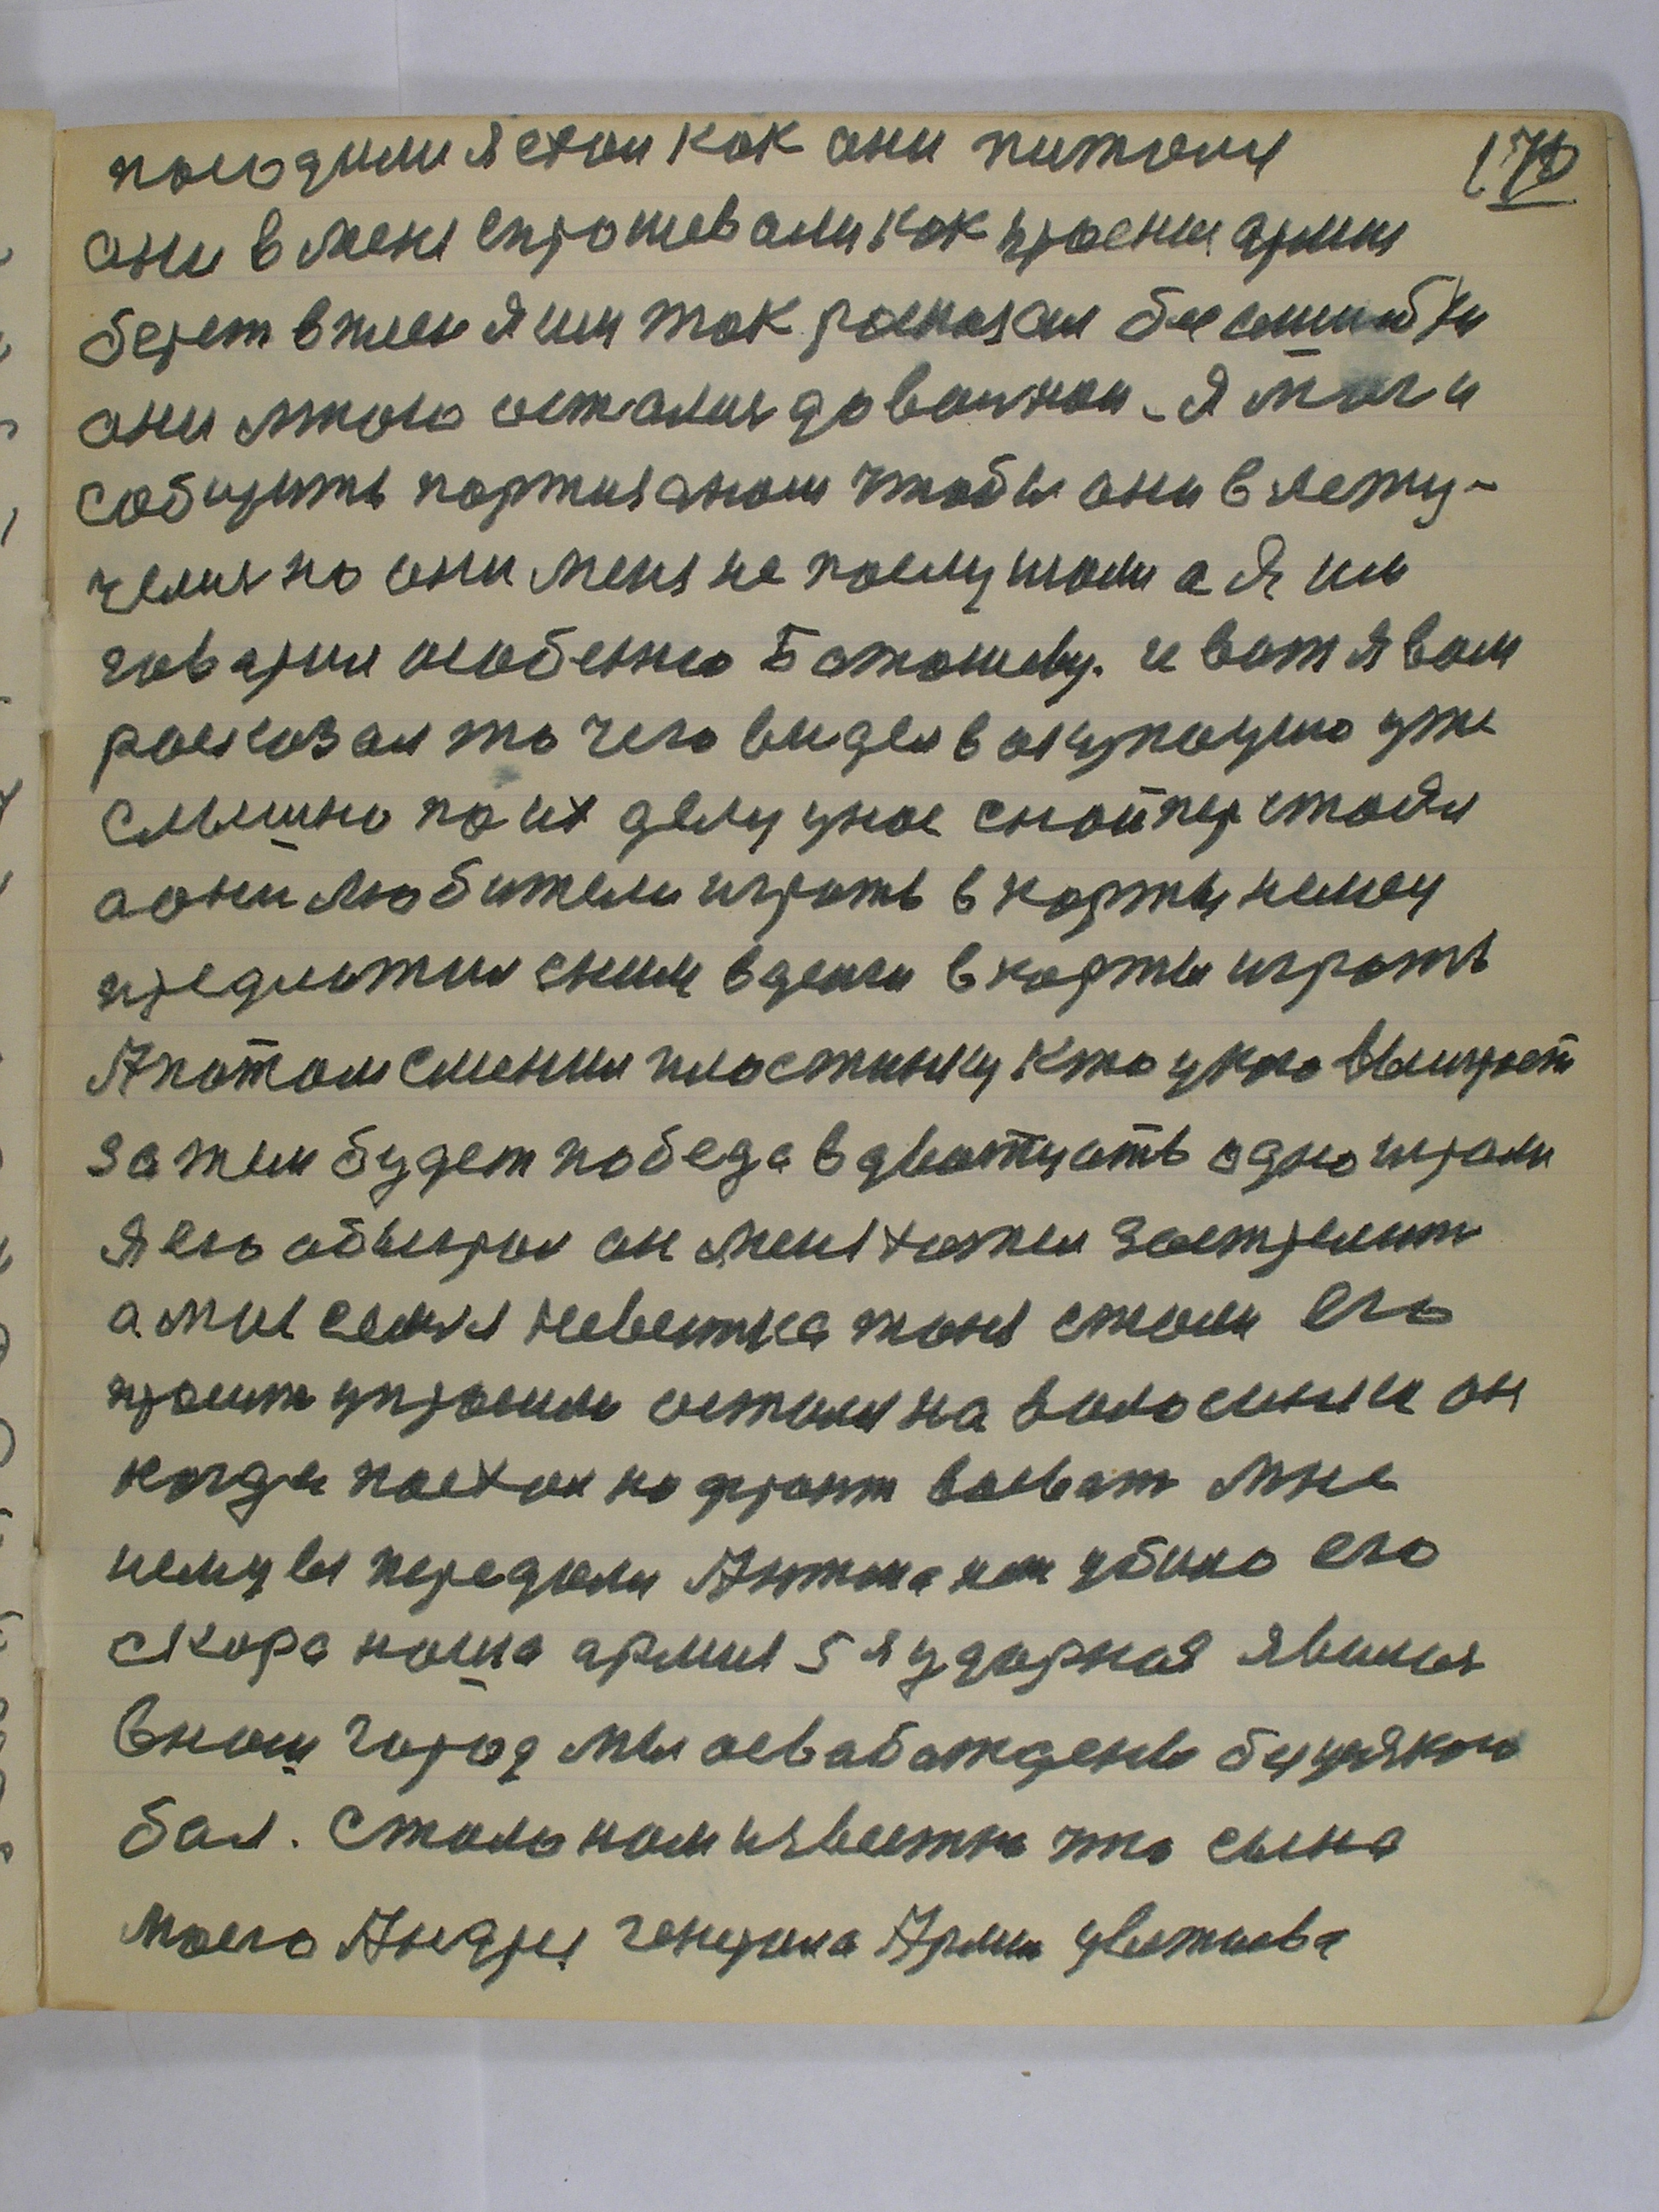 они в меня спрошевали как красния армия
берет в плен я им так росказал бес ошибки
они мною осталися довольнои - я мог и
собщить портизаном чтобы они влету-
челися но они меня не послушали а я им
говарил особенно Ботошеву. и вот я вам
росказал то чего видел в окупацию уже
слышно по их делу унас снойпер стоял
а они любители играть в карты немец
предложил сним в денги в карты играть
А потом сменил пластинку кто у кого выиграет
за тем будет победа в дватцать одно играли
я его обыграл он меня хотел застрелить
а моя семя невестка тоня стали его
просить упросили остался на волосинки он
когда поехал на фронт воевать мне
немцы передали Антона нет убило его
скора наша армия 5я ударная явилася
в наш город мы освабаждены
бая. Стало нам известно что сына
моего Андрея генерала Армии Цветаева